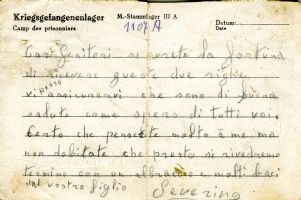 Kriegsgefangenenlager
Camp des prisonniers
M.-Stammlager III A
1107 A
Datum:
Date
Cari Genitori se avrete la fortuna
di ricevere queste due righe,
vi posso assicurarvi che sono di buona
salute come spero di tutti voi.
Certo che pensate molto á me ma
non dobitate che presto si rivedremo
termino con un abbracio e molti baci
dal vostro figlio Severino